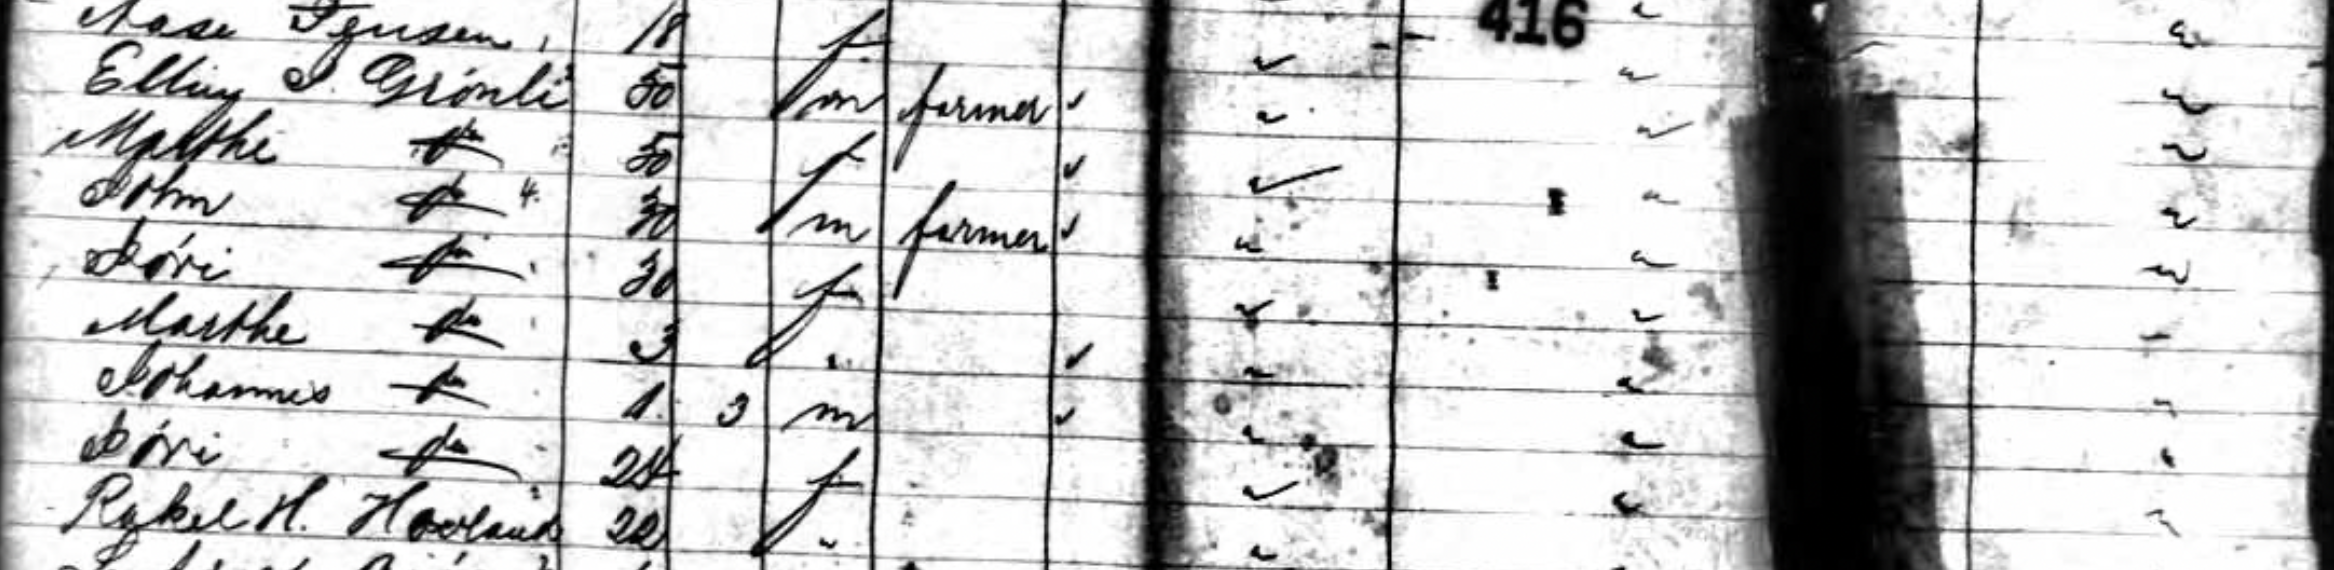 416
Aase Jensen 18 f
Elling I. Grönli 50 m farmer
Marthe do 50 f
John do 4. 30 m farmer
Söri do 30 f
Marthe do 3 "
Johannes do 1 3 m
Söri do 24 f
Rakel H. Hovland 22 "